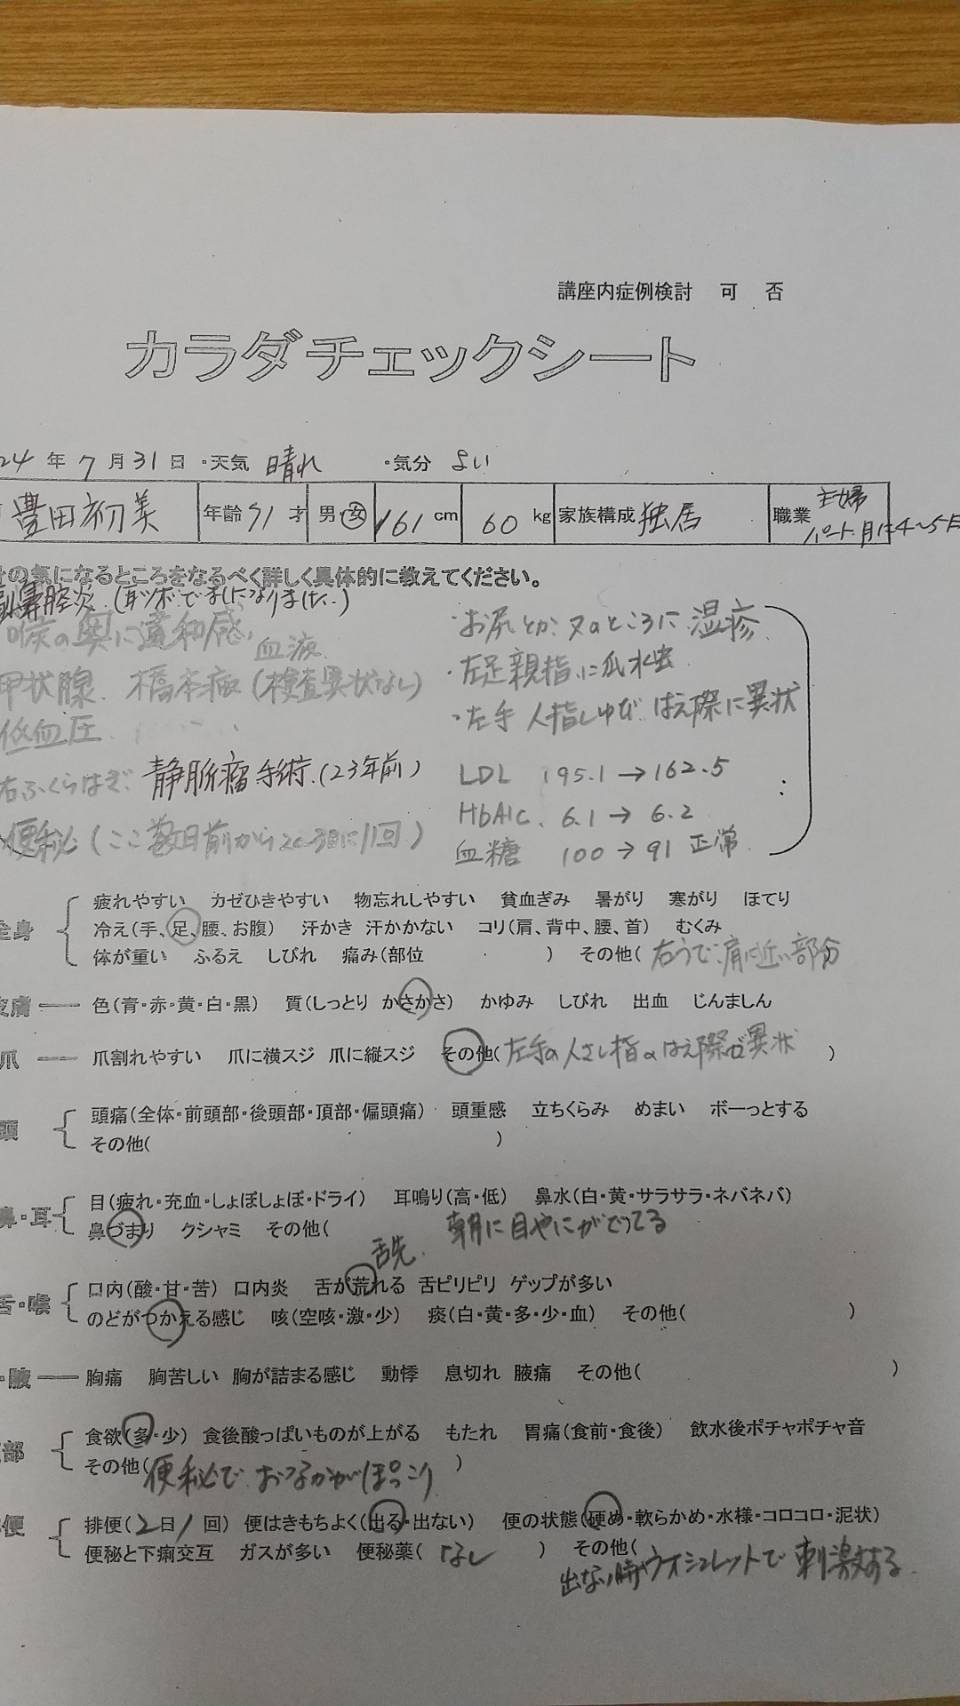 講座内症例検討 可 否
カラダチェックシート
24 年 7 月 31 日 ・天気 晴れ ・気分 よい
豊田初美 年齢 71 才 男・女 161 cm 60 kg 家族構成 独居 職業 主婦
パート月に4〜5日
せの気になるところをなるべく詳しく具体的に教えてください。
副鼻腔炎 (耳ツボでましになりました。)
喉の奥に違和感
血液
甲状腺 橋本病 (検査異状なし)
低血圧
右ふくらはぎ 静脈瘤手術 (23年前)
便秘 (ここ数日前から2〜3日に1回)
・お尻とか又のところに湿疹
・左足親指に爪水虫
・左手 人指しゆび はえ際に異状
LDL 195.1→162.5
HbA1c 6.1→6.2
血糖 100→91 正常
全身 疲れやすい カゼひきやすい 物忘れしやすい 貧血ぎみ 暑がり 寒がり ほてり
冷え(手、足、腰、お腹) 汗かき 汗かかない コリ(肩、背中、腰、首) むくみ
体が重い ふるえ しびれ 痛み(部位 ) その他( 右うで 肩に近い部分
皮膚 色(青・赤・黄・白・黒) 質(しっとり かさかさ) かゆみ しびれ 出血 じんましん
爪 爪割れやすい 爪に横スジ 爪に縦スジ その他( 左手の人さし指のはえ際が異状 )
頭 頭痛(全体・前頭部・後頭部・頂部・偏頭痛) 頭重感 立ちくらみ めまい ボーっとする
その他( )
鼻・耳 目(疲れ・充血・しょぼしょぼ・ドライ) 耳鳴り(高・低) 鼻水(白・黄・サラサラ・ネバネバ)
鼻づまり クシャミ その他( 朝に目やにがでてる
舌先
舌・喉 口内(酸・甘・苦) 口内炎 舌が荒れる 舌ピリピリ ゲップが多い
のどがつかえる感じ 咳(空咳・激・少) 痰(白・黄・多・少・血) その他( )
・腋 胸痛 胸苦しい 胸が詰まる感じ 動悸 息切れ 腋痛 その他( )
部 食欲(多・少) 食後酸っぱいものが上がる もたれ 胃痛(食前・食後) 飲水後ポチャポチャ音
その他( 便秘で おなかがぽっこり )
便 排便( 2 日 1 回) 便はきもちよく(出る・出ない) 便の状態(硬め・軟らかめ・水様・コロコロ・泥状)
便秘と下痢交互 ガスが多い 便秘薬( なし ) その他(
出ない時ウオシュレットで刺激する